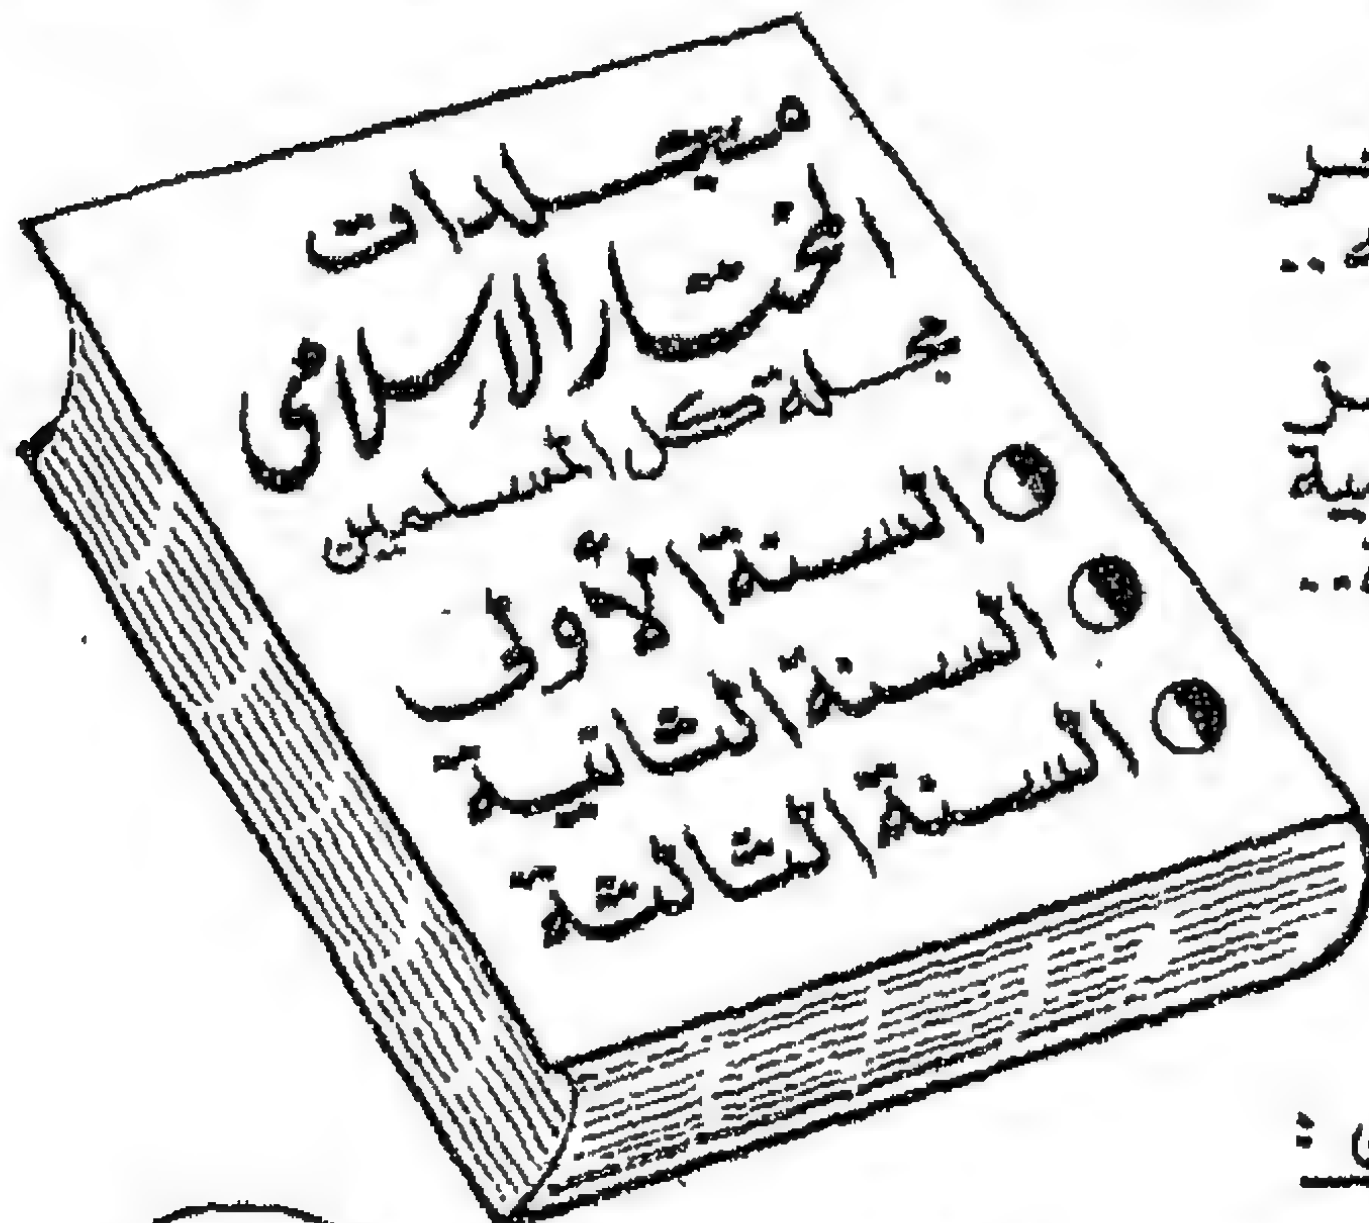 مجلدات
المختار الإسلامى
مجلة كل المسلمين
السنة الأولى
السنة الثانية
السنة الثالثة